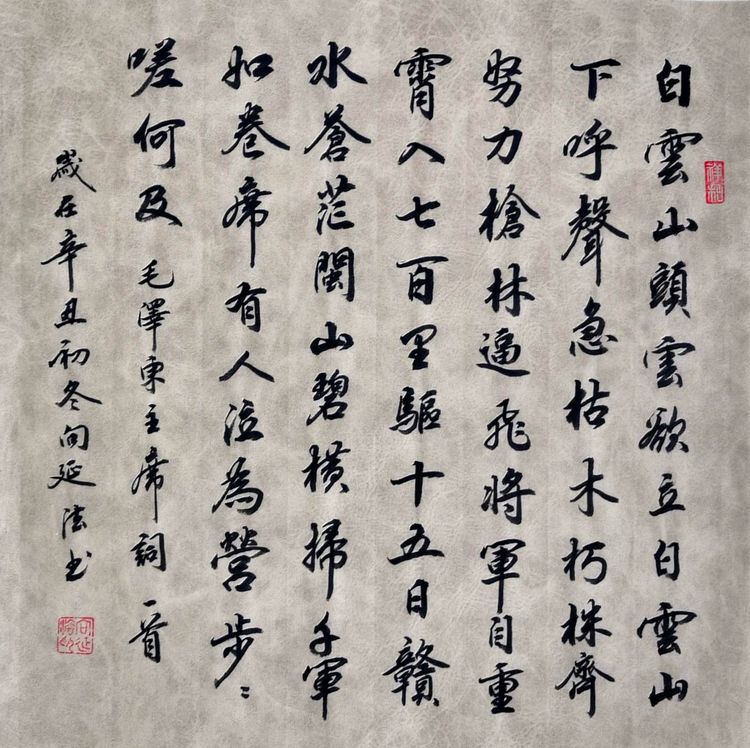 白雲山頭雲欲立白雲山
下呼聲急枯木朽株齊
努力槍林逼飛將軍自重
霄入七百里驅十五日贛
水蒼茫閩山碧橫掃千軍
如卷席有人泣為營步〻
嗟何及毛澤東主席詞一首
歲在辛丑初冬向延法书